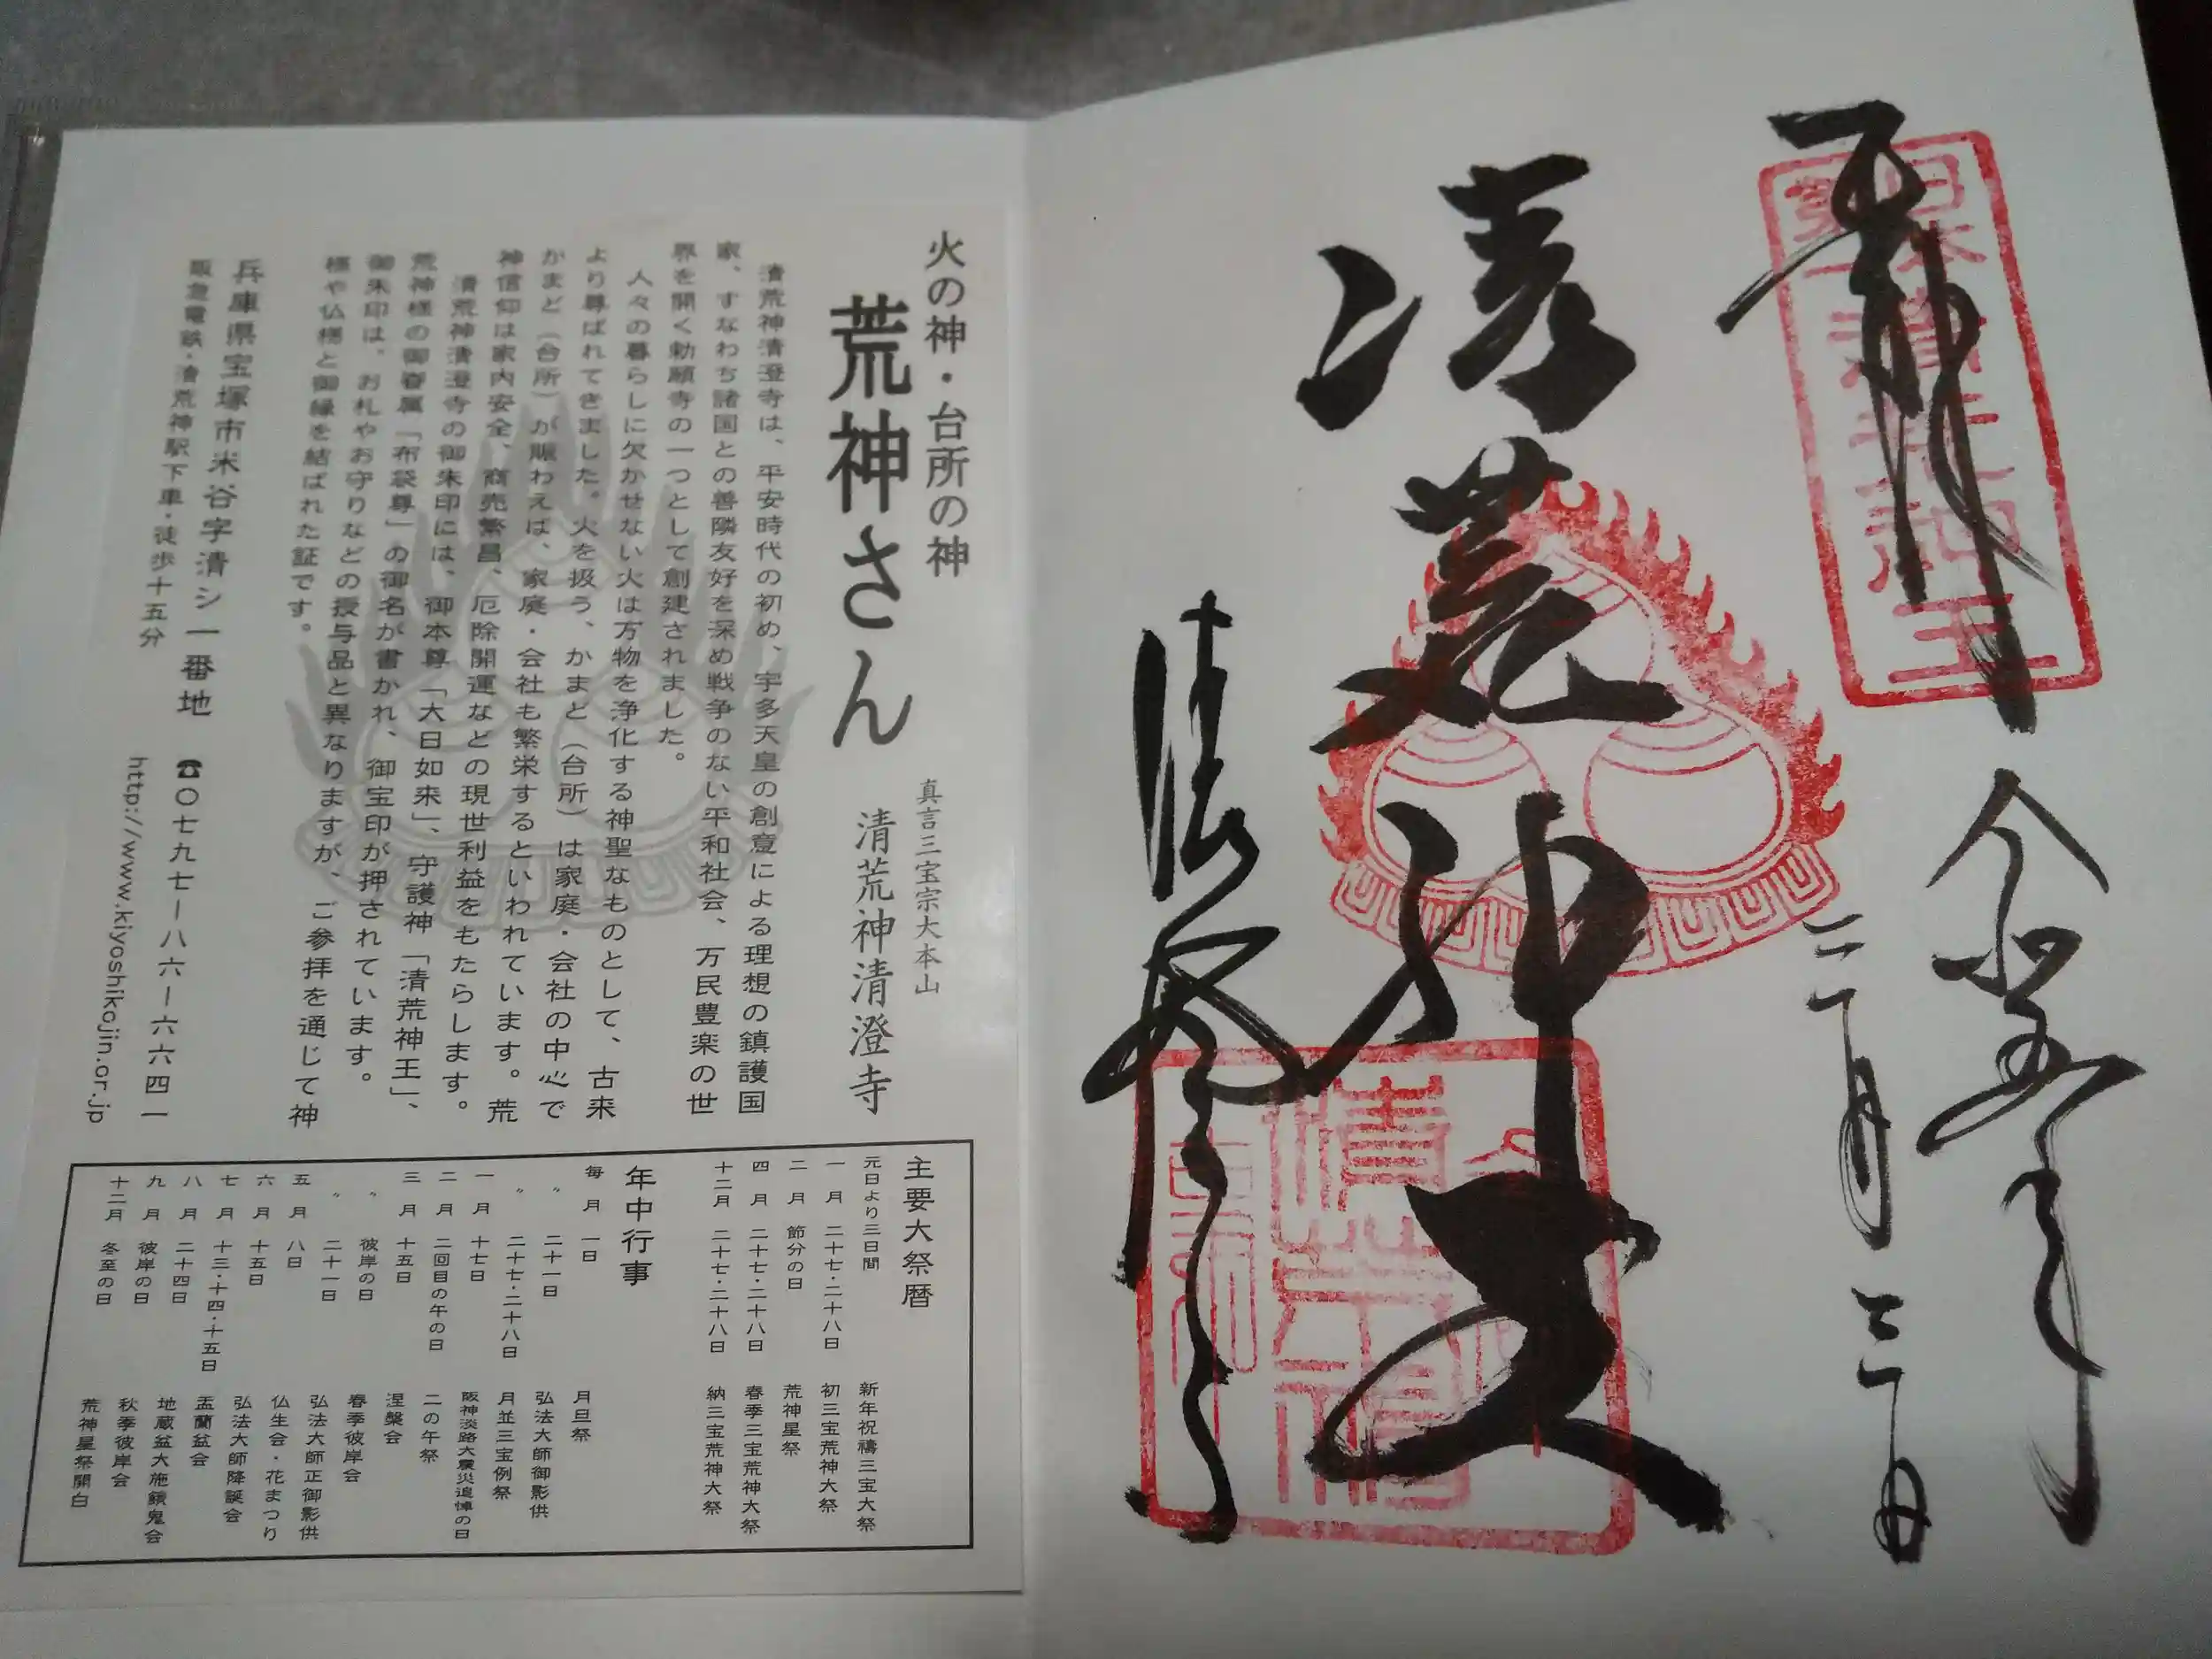 奉拝
令和五年
二月二日
清荒神王
清澄寺
日本第一清荒神王
火の神・台所の神
荒神さん
真言三宝宗大本山
清荒神清澄寺
清荒神清澄寺は、平安時代の初め、宇多天皇の創意による理想の鎮護国
家、すなわち諸国との善隣友好を深め戦争のない平和社会、万民豊楽の世
界を開く勅願寺の一つとして創建されました。
人々の暮らしに欠かせない火は万物を浄化する神聖なものとして、古来
より尊ばれてきました。火を扱う、かまど（台所）は家庭・会社の中心で
かまど（台所）が賑わえば、家庭・会社も繁栄するといわれています。荒
神信仰は家内安全、商売繁昌、厄除開運などの現世利益をもたらします。
清荒神清澄寺の御朱印には、御本尊「大日如来」、守護神「清荒神王」、
荒神様の御眷属「布袋尊」の御名が書かれ、御宝印が押されています。
御朱印は、お札やお守りなどの授与品と異なりますが、ご参拝を通じて神
様や仏様と御縁を結ばれた証です。
兵庫県宝塚市米谷字清シ一番地 ☎〇七九七ー八六ー六六四一
阪急電鉄・清荒神駅下車・徒歩十五分 http://www.kiyoshikojin.or.jp
主要大祭暦
元日より三日間 新年祝禱三宝大祭
一月 二十七・二十八日 初三宝荒神大祭
二月 節分の日 荒神星祭
四月 二十七・二十八日 春季三宝荒神大祭
十二月 二十七・二十八日 納三宝荒神大祭
年中行事
毎月 一日 月旦祭
〃 二十一日 弘法大師御影供
〃 二十七・二十八日 月並三宝例祭
一月 十七日 阪神淡路大震災追悼の日
二月 二回目の午の日 二の午祭
三月 十五日 涅槃会
〃 彼岸の日 春季彼岸会
〃 二十一日 弘法大師正御影供
五月 八日 仏生会・花まつり
六月 十五日 弘法大師降誕会
七月 十三・十四・十五日 盂蘭盆会
八月 二十四日 地蔵盆大施餓鬼会
九月 彼岸の日 秋季彼岸会
十二月 冬至の日 荒神星祭開白